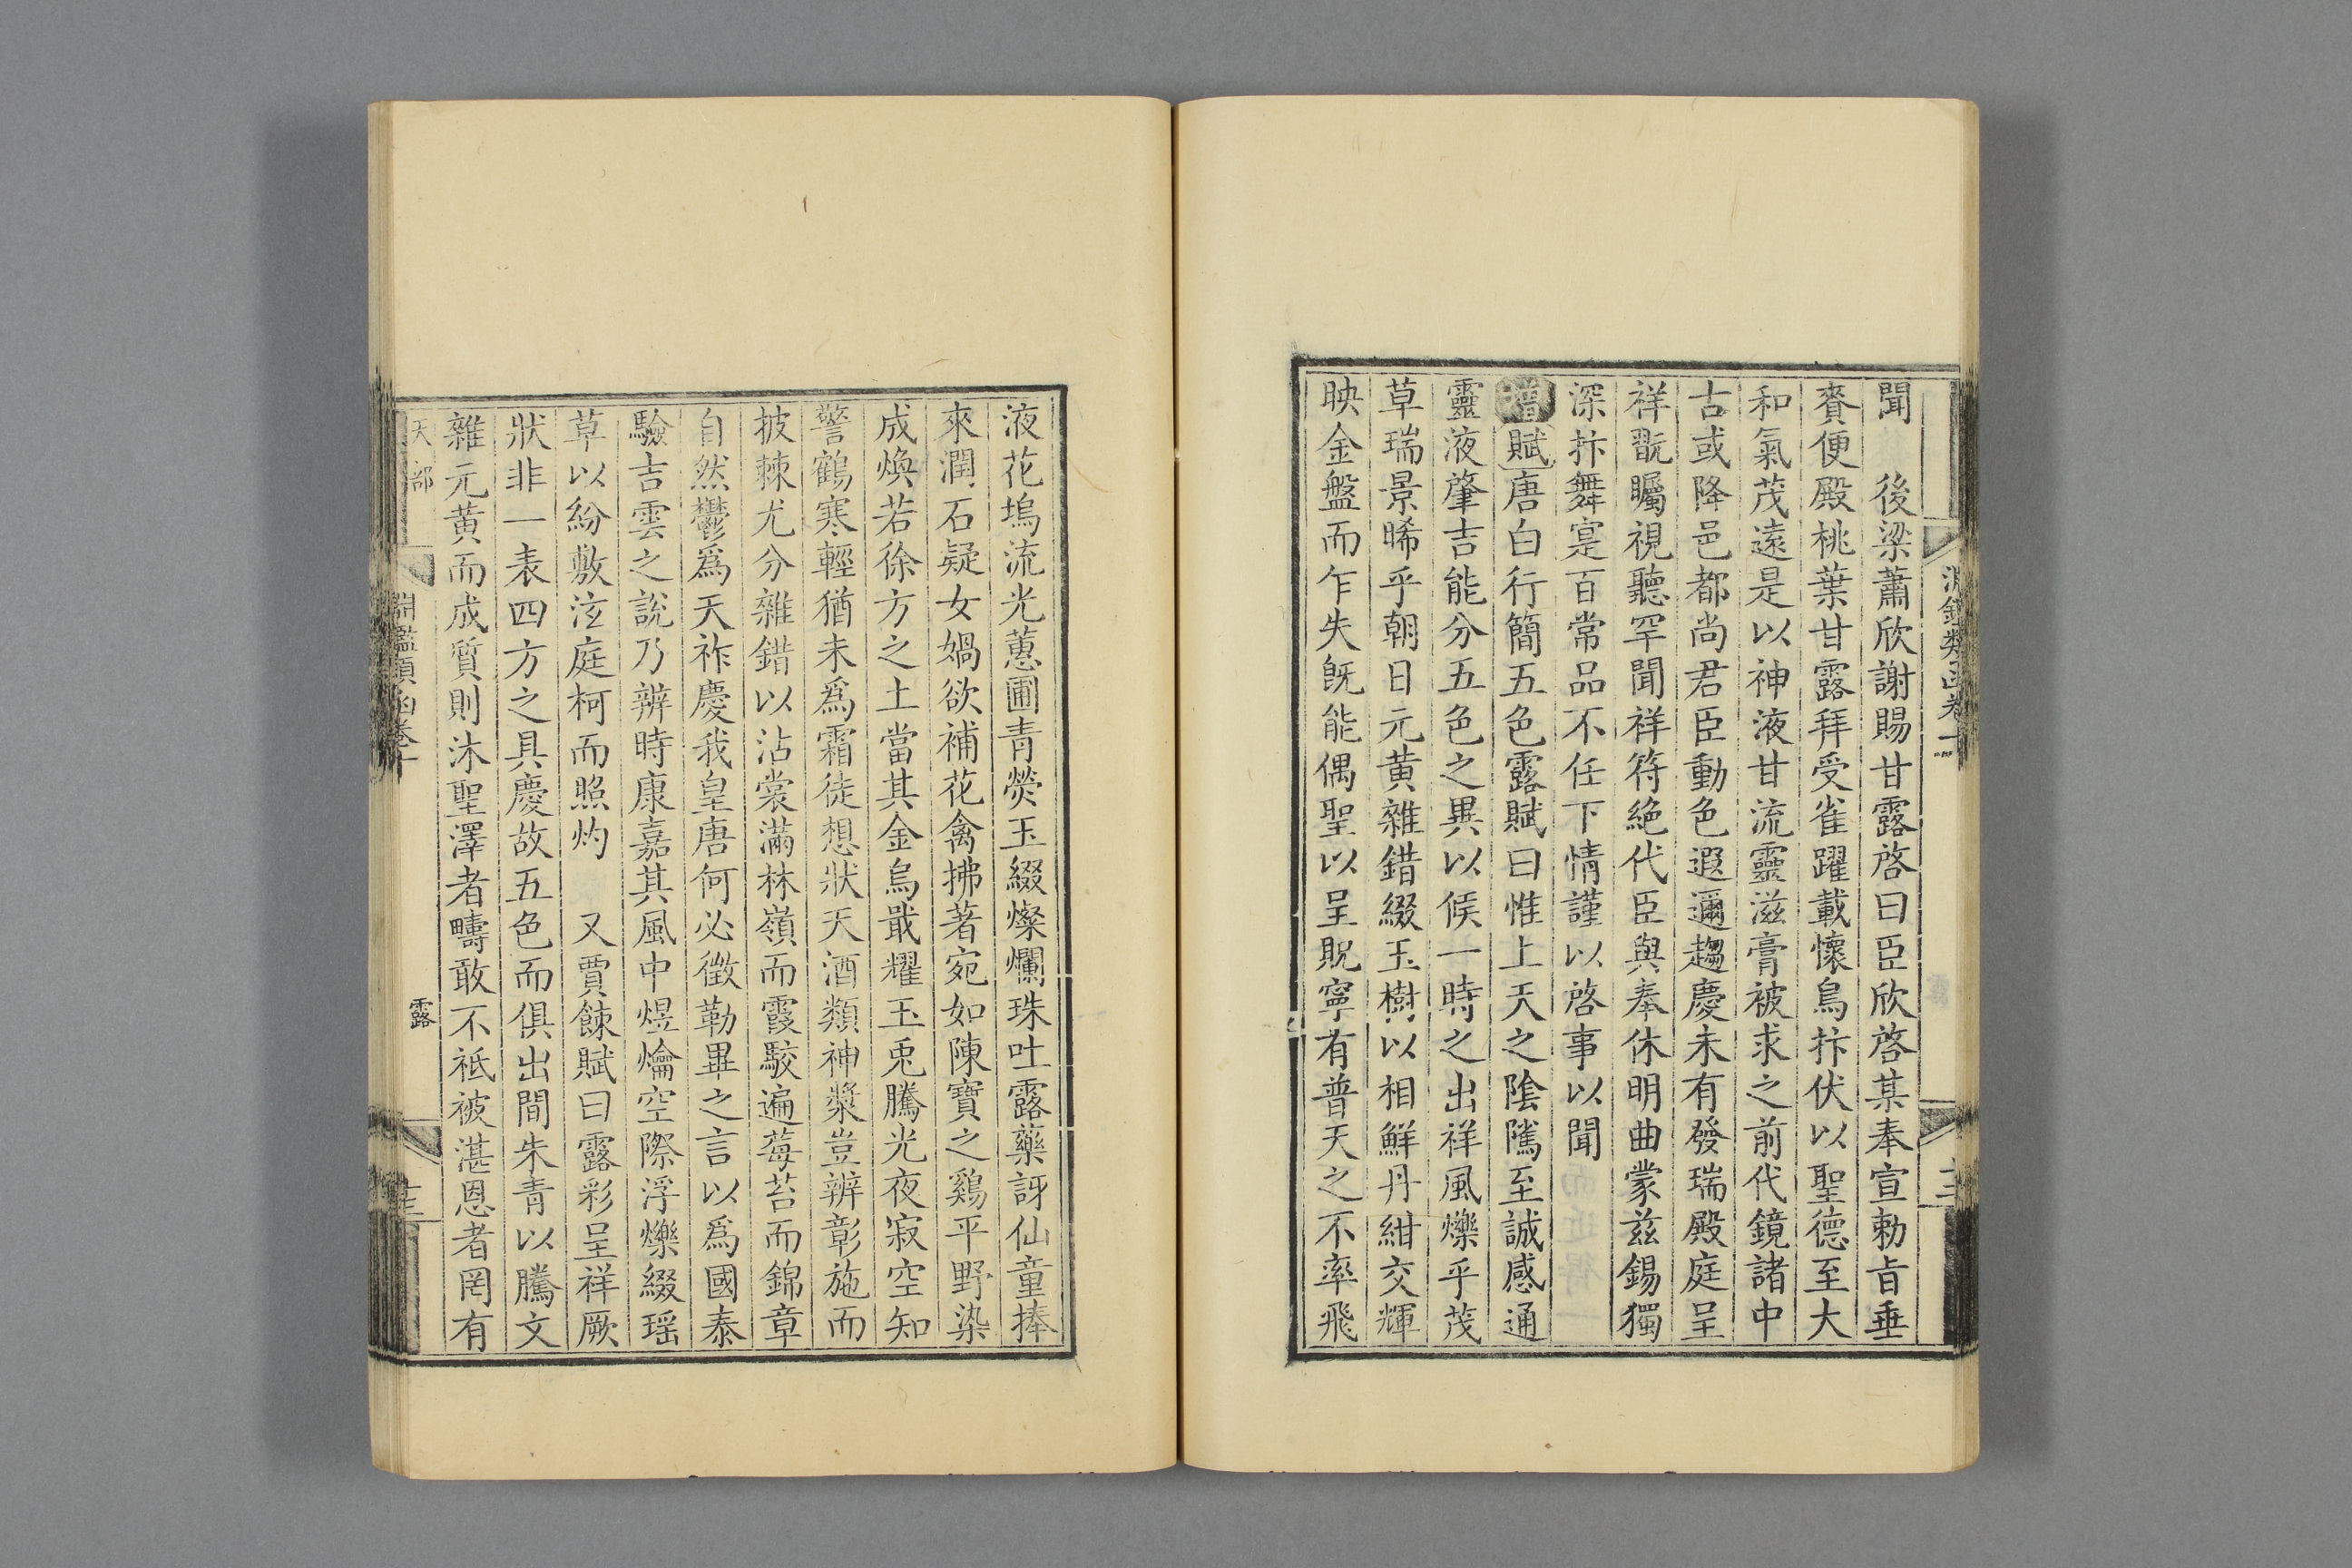 淵鑑類函卷十
聞　後梁蕭欣謝賜甘露啓曰臣欣啓某奉宣勅旨垂
賚便殿桃葉甘露拜受雀躍載懷鳥抃伏以聖德至大
和氣茂遠是以神液甘流靈滋膏被求之前代鏡諸中
古或降邑都尚君臣動色遐邇趨慶未有發瑞殿庭呈
祥翫矚視聽罕聞祥符絶代臣與奉休明曲蒙兹錫獨
深抃舞寔百常品不任下情謹以啓事以聞
增賦唐白行簡五色露賦曰惟上天之陰隲至誠感通
靈液肇吉能分五色之異以候一時之出祥風爍乎茂
草瑞景晞乎朝日元黃雜錯綴玉樹以相鮮丹紺交輝
映金盤而乍失既能偶聖以呈貺寧有普天之不率飛
液花塢流光蕙圃青熒玉綴燦爛珠吐露藥訝仙童捧
來潤石疑女媧欲補花禽拂著宛如陳寶之鷄平野染
成煥若徐方之土當其金烏戢耀玉兎騰光夜寂空知
警鶴寒輕猶未爲霜徒想狀天酒類神漿豈辨彰施而
披棘尤分雜錯以沾裳滿林嶺而霞駮遍莓苔而錦章
自然鬱爲天祚慶我皇唐何必徵勒畢之言以爲國泰
驗吉雲之說乃辨時康嘉其風中煜爚空際浮爍綴瑶
草以紛敷泫庭柯而照灼　又賈餗賦曰露彩呈祥厥
狀非一表四方之具慶故五色而俱出間朱青以騰文
雜元黃而成質則沐聖澤者疇敢不祗被湛恩者罔有
天部
淵鑑類函卷十
露